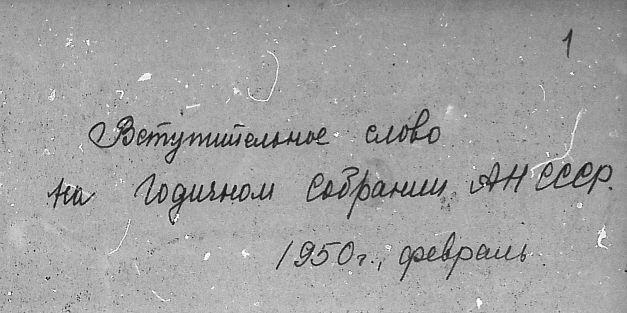 1
Вступительное слово
на Годичном собрании АН СССР.
1950г., февраль